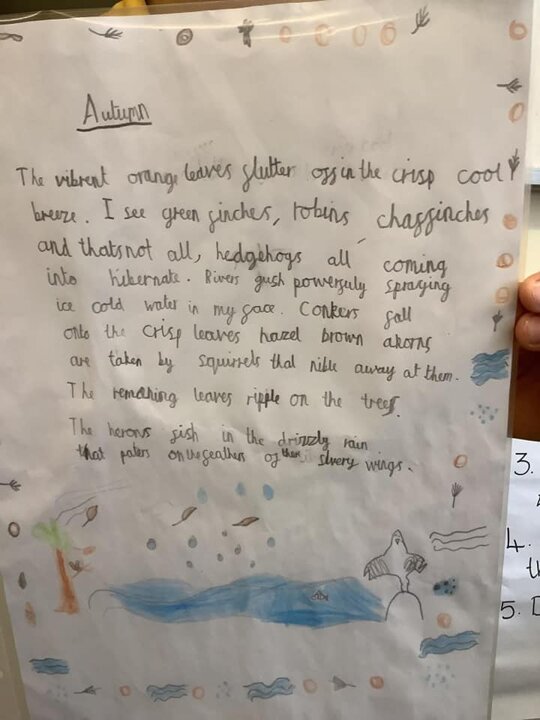 Autumn
The vibrant orange leaves flutter off in the crisp cool
breeze. I see green finches, robins chaffinches
and thats not all, hedgehogs all coming
into hibernate. Rivers gush powerfuly spraying
ice cold water in my face. Conkers fall
onto the crisp leaves hazel brown akorns
are taken by squirrels that nible away at them.
The remaning leaves ripple on the trees.
The herons fish in the drizzly rain
that paters on the feathers of their silvery wings.
3.
4.
5.